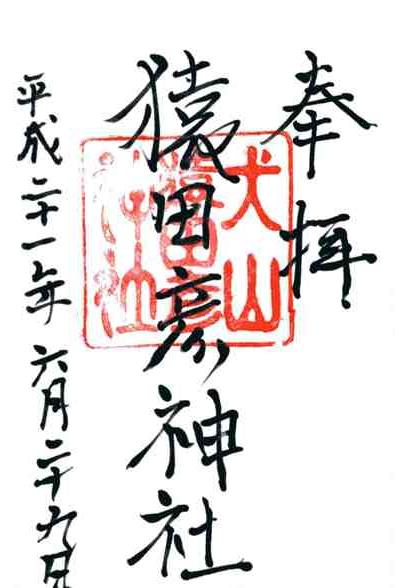 奉拝
犬山
猿田彦
神社
猿田彦神社
平成二十一年六月二十九日